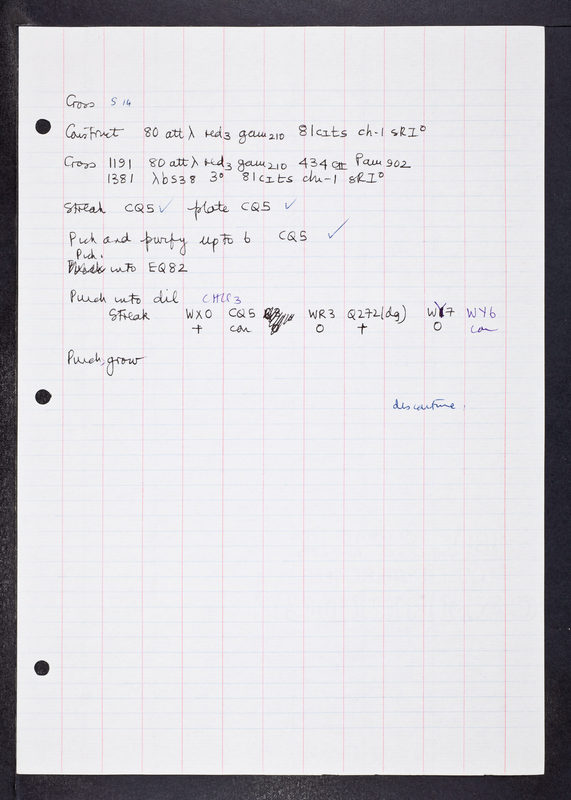 Cross S 14
Construct 80 att λ red3 gam210 81cIts ch-1 sRIº
Cross 1191 80 att λ red3 gam210 434 cII Pam 902
1381 λb538 3º 81cIts chi-1 sRIº
Streak CQ5 ✓ plate CQ5 ✓
Pick and purify up to 6 CQ5 ✓
Pick.
into EQ82
Punch into dil CHCl3
Streak WX0 CQ5 WR3 Q272(dg) WY7 WY6
+ con O + O con
Punch, grow
discontinue.